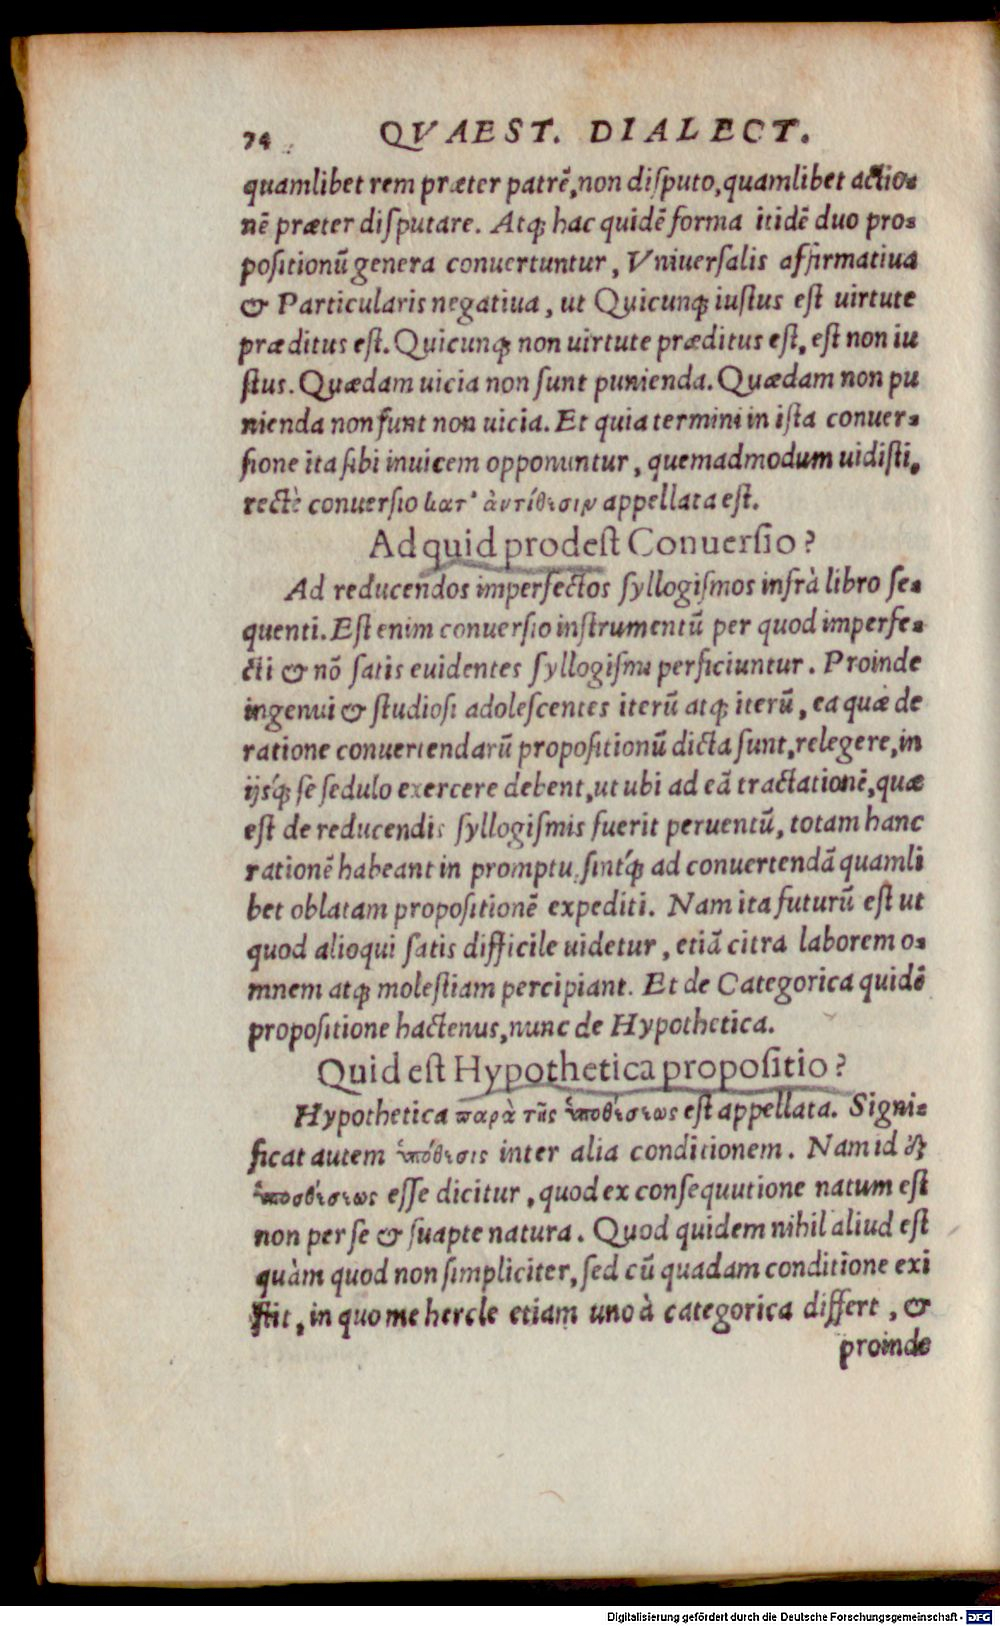 74 QVAEST. DIALECT.
quamlibet rem præter patrẽ, non diſputo, quamlibet actio-
nẽ præter diſputare. Atq; hac quidẽ forma itidẽ duo pro-
poſitionũ genera conuertuntur, Vniuerſalis affirmatiua
& Particularis negatiua, ut Quicunq; iuſtus eſt uirtute
præditus eſt. Quicunq; non uirtute præditus eſt, eſt non iu
ſtus. Quædam uicia non ſunt punienda. Quædam non pu
nienda non ſunt non uicia. Et quia termini in iſta conuer-
ſione ita ſibi inuicem opponuntur, quemadmodum uidiſti,
rectè conuerſio κατ' ἀντίθεσιν appellata eſt.
Ad quid prodeſt Conuerſio?
Ad reducendos imperfectos ſyllogiſmos infrà libro ſe-
quenti. Eſt enim conuerſio inſtrumentũ per quod imperfe-
cti & nõ ſatis euidentes ſyllogiſmi perficiuntur. Proinde
ingenui & ſtudioſi adoleſcentes iterũ atq; iterũ, ea quæ de
ratione conuertendarũ propoſitionũ dicta ſunt, relegere, in
ijsq́; ſe ſedulo exercere debent, ut ubi ad eã tractationẽ, quæ
eſt de reducendis ſyllogiſmis fuerit peruentũ, totam hanc
rationẽ habeant in promptu, ſintq́; ad conuertendã quamli
bet oblatam propoſitionẽ expediti. Nam ita futurũ eſt ut
quod alioqui ſatis difficile uidetur, etiã citra laborem o-
mnem atq; moleſtiam percipiant. Et de Categorica quidẽ
propoſitione hactenus, nunc de Hypothetica.
Quid eſt Hypothetica propoſitio?
Hypothetica παρὰ τῆς ὑποθέσεως eſt appellata. Signi-
ficat autem ὑπόθεσις inter alia conditionem. Nam id ἐξ
ὑποθέσεως eſſe dicitur, quod ex conſequutione natum eſt
non per ſe & ſuapte natura. Quod quidem nihil aliud eſt
quàm quod non ſimpliciter, ſed cũ quadam conditione exi
ſtit, in quo me hercle etiam uno à categorica differt, &
proinde
Digitalisierung gefördert durch die Deutsche Forschungsgemeinschaft - DFG